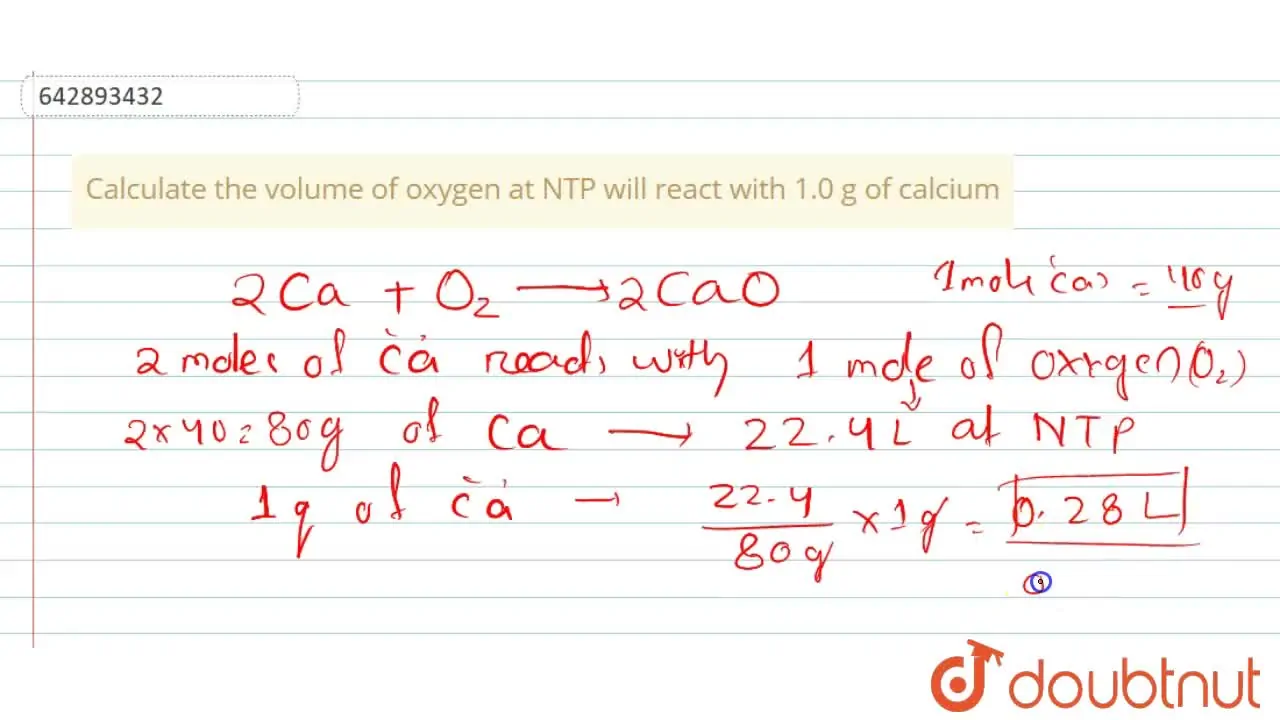 642893432
Calculate the volume of oxygen at NTP will react with 1.0 g of calcium
2Ca + O₂ → 2CaO
1 mole Ca = 40g
2 moles of Ca reacts with 1 mole of oxygen (O₂)
2×40=80g of Ca → 22.4L at NTP
1g of Ca → 22.4/80g × 1g = 0.28L
doubtnut